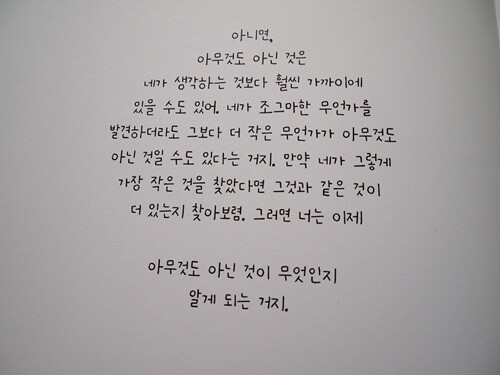 아니면,
아무것도 아닌 것은
네가 생각하는 것보다 훨씬 가까이에
있을 수도 있어. 네가 조그마한 무언가를
발견하더라도 그보다 더 작은 무언가가 아무것도
아닌 것일 수도 있다는 거지. 만약 네가 그렇게
가장 작은 것을 찾았다면 그것과 같은 것이
더 있는지 찾아보렴. 그러면 너는 이제
아무것도 아닌 것이 무엇인지
알게 되는 거지.